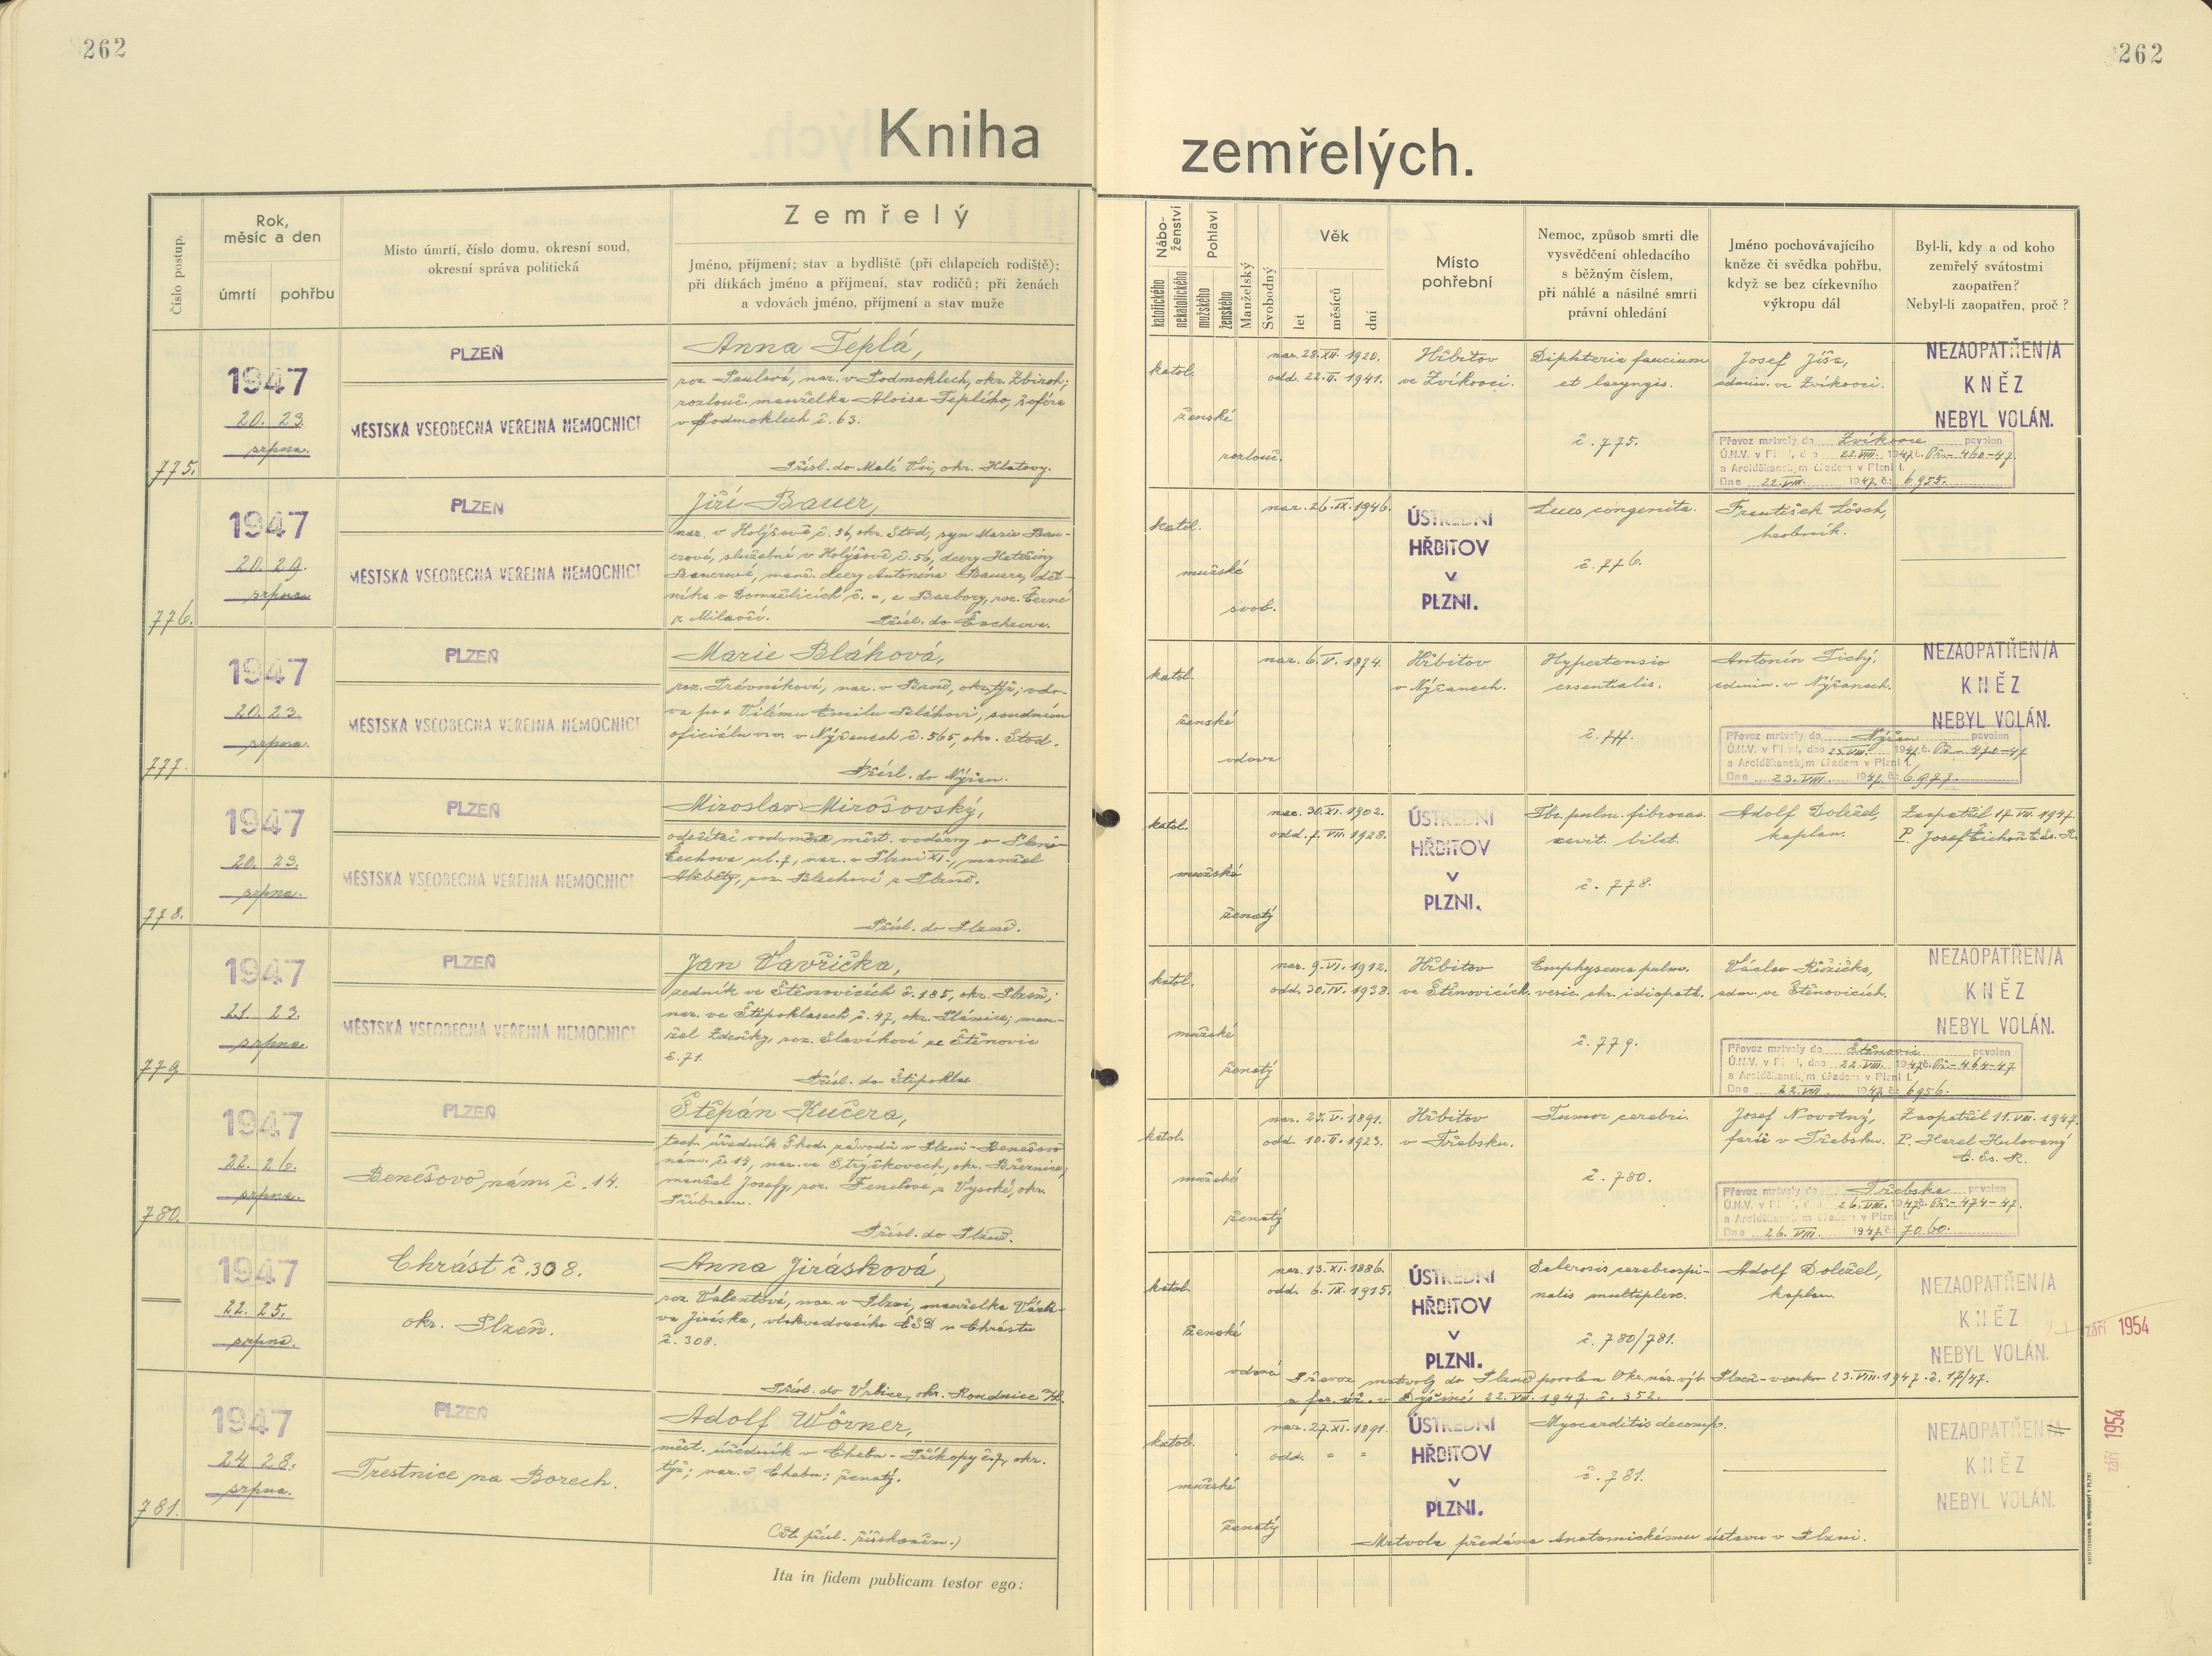 262
262
Kniha
zemřelých.
Číslo postup.
Rok,
měsíc a den
úmrtí
pohřbu
Místo úmrtí, číslo domu, okresní soud,
okresní správa politická
Zemřelý
Jméno, příjmení; stav a bydliště (při chlapcích rodiště);
při dítkách jméno a příjmení, stav rodičů; při ženách
a vdovách jméno, příjmení a stav muže
Nábo-
ženství
katolického
nekatolického
Pohlaví
mužského
ženského
Manželský
Svobodný
Věk
let
měsíců
dní
Místo
pohřební
Nemoc, způsob smrti dle
vysvědčení ohledacího
s běžným číslem,
při náhlé a násilné smrti
právní ohledání
Jméno pochovávajícího
kněze či svědka pohřbu,
když se bez církevního
výkropu dál
Byl-li, kdy a od koho
zemřelý svátostmi
zaopatřen?
Nebyl-li zaopatřen, proč?
775.
1947
20. 23.
srpna.
PLZEŇ
MĚSTSKÁ VŠEOBECNÁ VEŘEJNÁ NEMOCNICE
Anna Teplá,
roz. Paulová, nar. v Podmoklech, okr. Zbiroh;
rozlouč. manželka Aloise Teplího, šoféra
v Podmoklech č. 63.
Přísl. do Malé Vsi, okr. Klatovy.
katol.
ženské
rozlouč.
nar. 28. XII. 1920.
odd. 22. II. 1941.
Hřbitov
ve Zvíkovci.
Diphteria faucium
et laryngis.
č. 775.
Josef Jíša,
admin. ve Zvíkovci.
NEZAOPATŘEN/A
KNĚZ
NEBYL VOLÁN.
Převoz mrtvoly do Zvíkovce povolen
Ú.N.V. v Plzni, dne 22. VIII. 1947 č. Př.-460-47.
a Arciděkanským úřadem v Plzni I.
Dne 22. VIII. 1947. č. 6955.
776.
1947
20. 29.
srpna
PLZEŇ
MĚSTSKÁ VŠEOBECNÁ VEŘEJNÁ NEMOCNICE
Jiří Bauer,
nar. v Holýšově č. 56, okr. Stod, syn Marie Bau-
erové, služebné v Holýšově č. 56, dcery Kateřiny
Bauerové, manž. dcery Antonína Bauera, děl-
níka v Domažlicích č. -, a Barbory, roz. Černé
z Milavčí. Přísl. do
katol.
mužské
svob.
nar. 26. IX. 1946.
ÚSTŘEDNÍ
HŘBITOV
V
PLZNI.
Lues congenita.
č. 776.
František Lösch,
hrobník.
777.
1947
20. 23.
srpna.
PLZEŇ
MĚSTSKÁ VŠEOBECNÁ VEŘEJNÁ NEMOCNICE
Marie Bláhová,
roz. Trávníková, nar. v Brně, okr. týž; vdo-
va po + Vilému Emilu Bláhovi, soudním
oficiálu v Nýřanech č. 565, okr. Stod.
Přísl. do Nýřan.
katol.
ženské
vdova
nar. 6. V. 1874.
Hřbitov
v Nýřanech.
Hypertensio
essentialis.
č. 777.
Antonín Tichý,
admin. v Nýřanech.
NEZAOPATŘEN/A
KNĚZ
NEBYL VOLÁN.
Převoz mrtvoly do Nýřan povolen
Ú.N.V. v Plzni, dne 23. VIII. 1947 č. Př.-470-47
a Arciděkanským úřadem v Plzni I.
Dne 23. VIII. 1947. č. 6977.
778.
1947
20. 23.
srpna.
PLZEŇ
MĚSTSKÁ VŠEOBECNÁ VEŘEJNÁ NEMOCNICE
Miroslav Mirošovský,
odečítač vodoměrů měst. vodárny v Plzni-
Čechova ul. 7, nar. v Plzni XI., manžel
Alžběty, roz. Blechové z Plzně.
Přísl. do Plzně.
katol.
mužské
ženatý
nar. 30. XI. 1902.
odd. 7. VII. 1928.
ÚSTŘEDNÍ
HŘBITOV
V
PLZNI.
Tbc. pulm. fibrocas.
cavit. bilat.
č. 778.
Adolf Doležel,
kaplan.
Zaopatřil 17. VII. 1947.
P. Josef Cichoň C. Ss. R.
779
1947
21. 23.
srpna.
PLZEŇ
MĚSTSKÁ VŠEOBECNÁ VEŘEJNÁ NEMOCNICE
Jan Vavřička,
zedník ve Štěnovicích č. 185, okr. Plzeň;
nar. ve Štipoklasech č. 47, okr. Plánice; man-
žel Zdeňky, roz. Slavíkové ze Štěnovic
č. 71.
Přísl. do Štipoklas.
katol.
mužské
ženatý
nar. 9. VI. 1912.
odd. 30. IV. 1938.
Hřbitov
ve Štěnovicích.
Emphysema pulm.
vesic. chr. idiopath.
č. 779.
Václav Růžička,
adm. ve Štěnovicích.
NEZAOPATŘEN/A
KNĚZ
NEBYL VOLÁN.
Převoz mrtvoly do Štěnovic povolen
Ú.N.V. v Plzni, dne 22. VIII. 1947 č. Př.-464-47
a Arciděkanským úřadem v Plzni I.
Dne 22. VIII. 1947. č. 6956.
780.
1947
22. 26.
srpna.
PLZEŇ
Benešovo nám. č. 14.
Štěpán Kučera,
tech. úředník Škod. závodů v Plzni - Benešovo
nám. č. 14, nar. ve Strýčkovech, okr. Březnice;
manžel Josefy, roz. Fenclové z Vysoké, okr.
Příbram.
Přísl. do Plzně.
katol.
mužské
ženatý
nar. 25. V. 1891.
odd. 10. II. 1923.
Hřbitov
v Třebsku.
Tumor cerebri.
č. 780.
Josef Novotný,
farář v Třebsku.
Zaopatřil 11. VIII. 1947.
P. Karel Hulovaný
C. Ss. R.
Převoz mrtvoly do Třebska povolen
Ú.N.V. v Plzni, dne 26. VIII. 1947 č. Př.-474-47.
a Arciděkanským úřadem v Plzni I.
Dne 26. VIII. 1947. č. 7060.
1947
22. 25.
srpna.
Chrást č. 308.
okr. Plzeň.
Anna Jirásková,
roz. Valentová, nar. v Plzni, manželka Václa-
va Jiráska, vlakvedoucího ČSD v Chrástu
č. 308.
Přísl. do Vrbice, okr. Roudnice
katol.
ženské
vdaná
nar. 13. XI. 1886.
odd. 6. IX. 1915.
ÚSTŘEDNÍ
HŘBITOV
V
PLZNI.
Sclerosis cerebrospi-
nalis multiplex.
č. 780/781.
Adolf Doležel,
kaplan.
NEZAOPATŘEN/A
KNĚZ
NEBYL VOLÁN.
září 1954
Převoz mrtvoly do Plzně povolen Okr. nár. výb. Plzeň-venkov 23. VIII. 1947. č. 17/47.
a far. úř. v Dýšině 22. VIII. 1947. č. 352.
781.
1947
24. 28.
srpna.
PLZEŇ
Trestnice na Borech.
Adolf Wörner,
měst. úředník v Chebu - Příkopy č. 7, okr.
týž; nar. v Chebu; ženatý.
(St. přísl. říšskoněm.)
katol.
mužské
ženatý
nar. 27. XI. 1891.
odd. - -
ÚSTŘEDNÍ
HŘBITOV
V
PLZNI.
Myocarditis decomp.
č. 781.
NEZAOPATŘEN/A
KNĚZ
NEBYL VOLÁN.
září 1954
Mrtvola předána Anatomickému ústavu v Plzni.
Ita in fidem publicam testor ego: